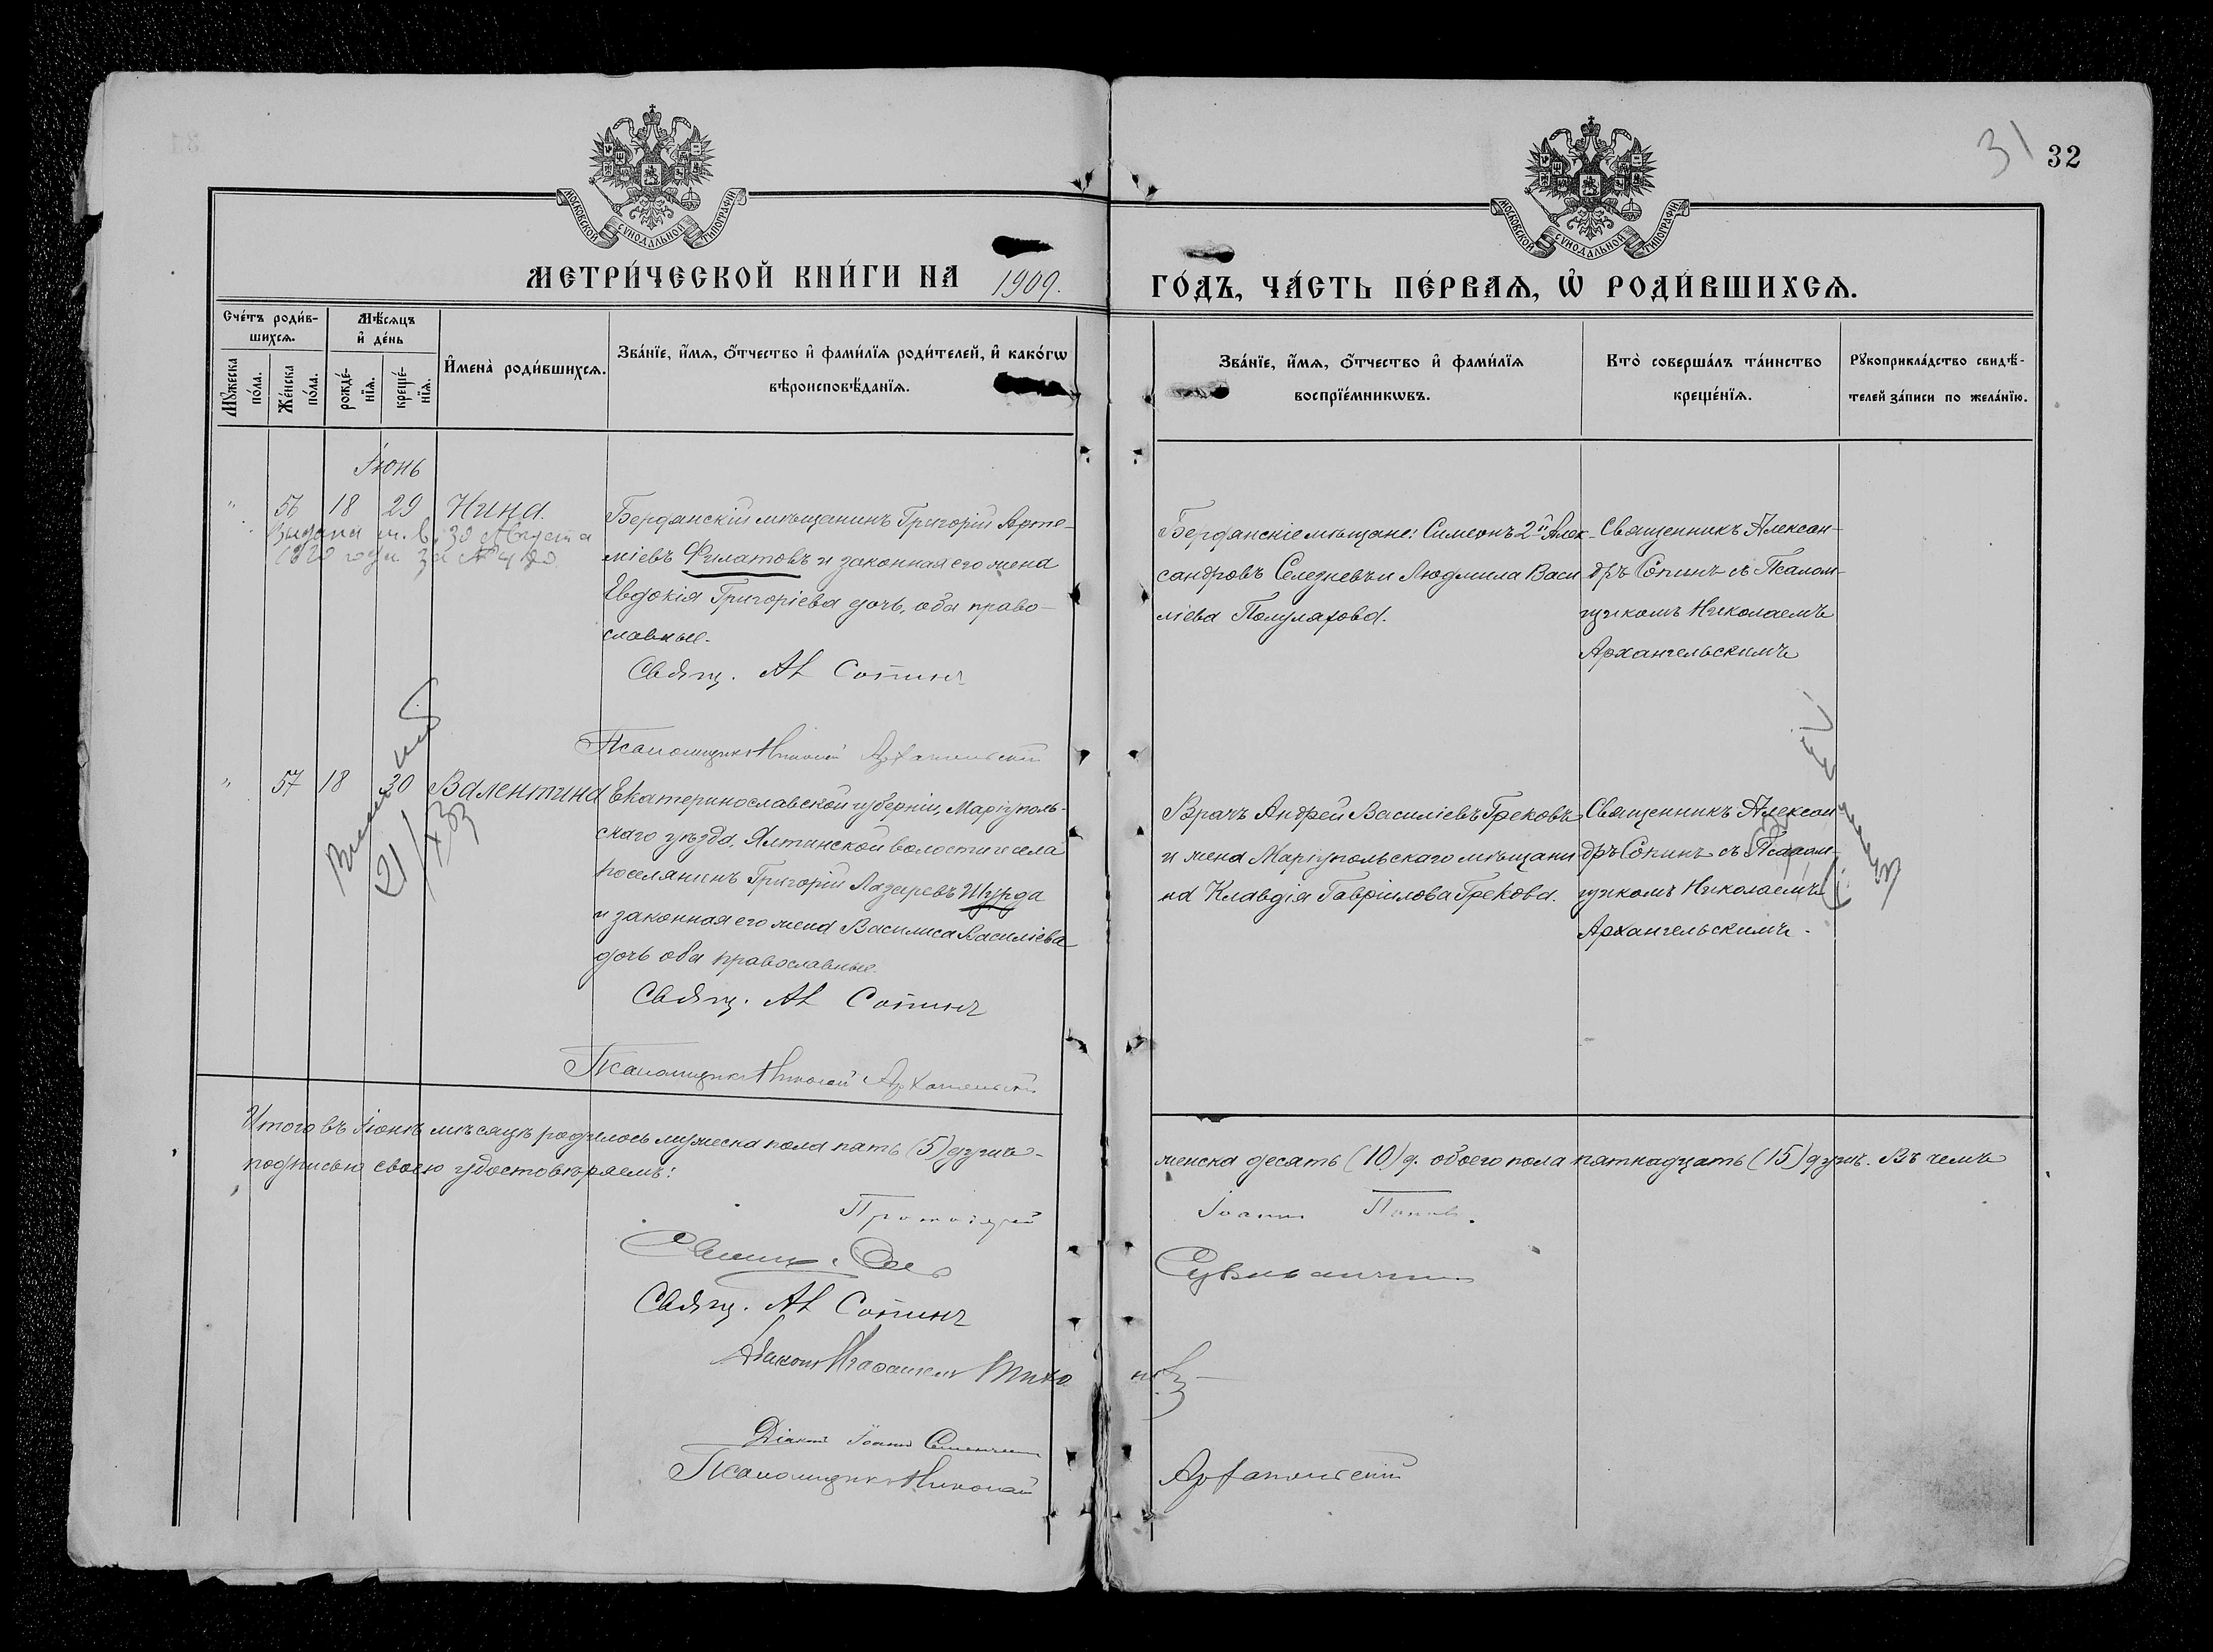 31 32
МОСКОВСКОЙ СѴНОДАЛЬНОЙ ТИПОГРАФІИ
МОСКОВСКОЙ СѴНОДАЛЬНОЙ ТИПОГРАФІИ
МЕТРИ́ЧЕСКОЙ КНИ́ГИ НА 1909. ГО́ДЪ, ЧА́СТЬ ПЕ́РВАѦ, Ѡ҆ РОДИ́ВШИХСѦ.
Сче́тъ роди́в-
шихсѧ.
Мꙋ́жеска по́ла.
Же́нска по́ла.
Мѣ́сѧцъ и҆ де́нь
рожде́-нїѧ.
креще́-нїѧ.
И҆мена̀ роди́вшихсѧ.
Зва́нїе, и҆́мѧ, ѻ҆́тчество и҆ фами́лїѧ роди́телей, и҆ како́гѡ
вѣроисповѣ́данїѧ.
Зва́нїе, и҆́мѧ, ѻ҆́тчество и҆ фами́лїѧ
воспрїе́мникѡвъ.
Кто̀ соверша́лъ та́инство
креще́нїѧ.
Рꙋкоприкла́дство свидѣ́-
телей за́писи по жела́нїю.
Іюнь
" 56 18 29 Нина.
Выдана м. в. 30 Августа
года за №
Бердянскій мѣщанинъ Григорій Арте-
міевъ Филатовъ и законная его жена
Евдокія Григоріева дочь, оба право-
славные.
Свящ. Ал Сопинъ
Псаломщикъ Николай Архангельскій
Бердянскіе мѣщане: Симеонъ 2й Алек-
сандровъ Селезневъ и Людмила Васи
ліева Полулахова.
Священникъ Алексан-
дръ Сопинъ съ Псалом-
щикомъ Николаемъ
Архангельскимъ
" 57 18 30 Валентина
21/X 33
Екатеринославской губерніи, Маріуполь-
скаго уѣзда, Ялтинской волости и села
поселянинъ Григорій Лазаревъ Шурда
и законная его жена Василиса Василіева
дочь оба православные.
Свящ. Ал Сопинъ
Псаломщикъ Николай Архангельскій
Врачъ Андрей Василіевъ Грековъ
и жена Маріупольскаго мѣщани
на Клавдія Гавріилова Грекова.
Священникъ Алексан
дръ Сопинъ съ Псалом-
щикомъ Николаемъ
Архангельскимъ.
Итого въ Іюнѣ мѣсяцѣ родилось мужеска пола пять (5) душъ - женска десять (10) д. обоего пола пятнадцать (15) душъ. Въ чемъ
подписью своею удостовѣряемъ:
Протоіерей Іоаннъ Поповъ.
Свящ.
Свящ. Ал Сопинъ
Діаконъ
Діаконъ Іоаннъ
Псаломщикъ Николай Архангельскій